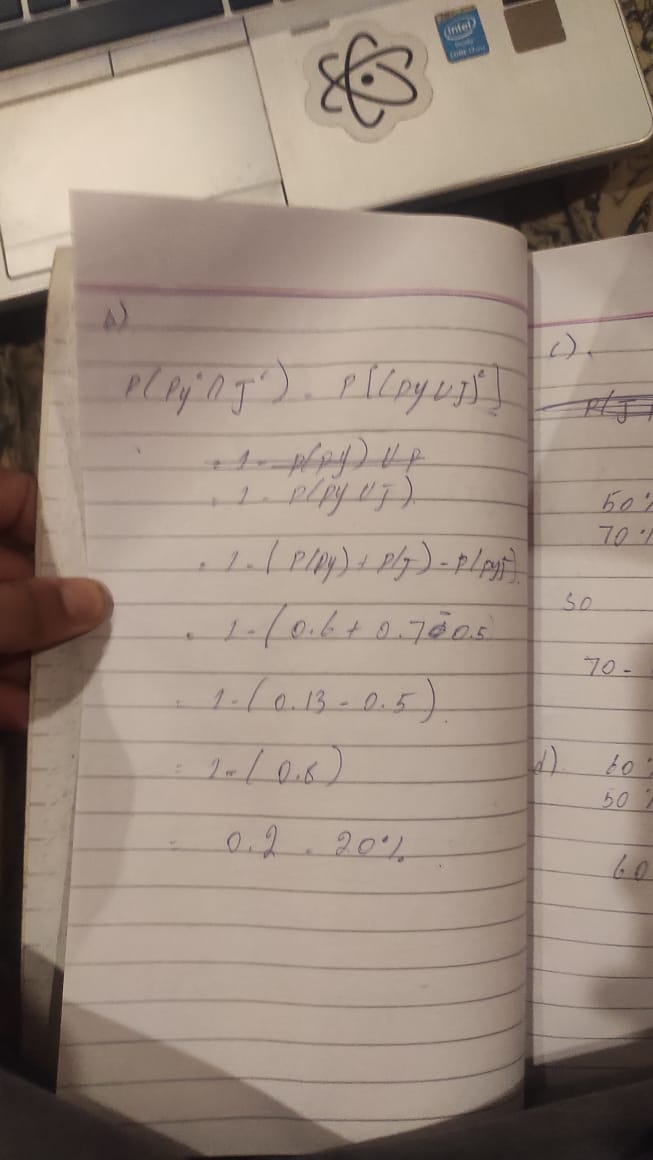 intel
inside
CORE i7
b)
P(Py' ∩ J') = P[(Py ∪ J)ᶜ]
= 1 - P(Py) ∪ P
= 1 - P(Py ∪ J)
= 1 - (P(Py) + P(J) - P(PyJ)
= 1 - (0.6 + 0.7 - 0.5
= 1 - (0.13 - 0.5)
= 1 - (0.8)
= 0.2 = 20%
c).
P(J
50%
70%
50
70 -
d). 60%
50%
60